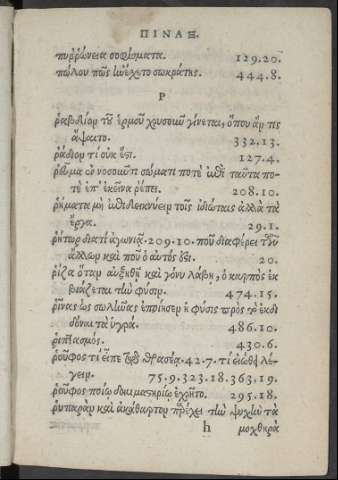 ΠΙΝΑΞ.
πυῤῥώνεια σοφίσματα. 129.20.
πώλου πῶς ἠνέχετο σωκράτης. 444.8.
Ρ
ῥαβδίον τοῦ ἑρμοῦ χρυσοῦν γίνεται, ὅπου ἄν τις
ἅψαιτο. 332.13.
ῥάδιον τί οὐκ ἔστι. 127.4.
ῥεῦμα ἐν νοσοῦντι σώματι ποτὲ κατὰ ταῦτα πο-
τὲ ἐπ' ἐκεῖνα ῥέπει. 208.10.
ῥήματα μὴ ἐπιδεικνύειν τοῖς ἰδιώταις ἀλλὰ τὰ
ἔργα. 29.1.
ῥήτωρ διατί ἀγωνιᾷ. 209.10. ποῦ διαφέρει τῶν
ἄλλων καὶ ποῦ ὁ αὐτός ἐστι. 20.
ῥίζα ὅταν αὐξηθῇ καὶ γόνυ λάβῃ, ὁ καρπὸς ἐκ
βιάζεται τὴν φύσιν. 474.15.
ῥῖνας ὡς σωλῆνας ἐπρίησεν ἡ φύσις πρὸς τὸ ἐκδί
δοναι τὰ ὑγρά. 486.10.
ῥιπτασμός. 430.6.
ῥοῦφος τί εἶπε πρὸς θρασέα. 42.7. τί εἰώθει λέ-
γειν. 75.9.323.18.363.19.
ῥοῦφος ποίῳ δοκιμαστηρίῳ ἐχρῆτο. 295.18.
ῥυπαρὰν καὶ ἀκάθαρτον παρέχει τὴν ψυχὴν τὰ
h μοχθηρὰ